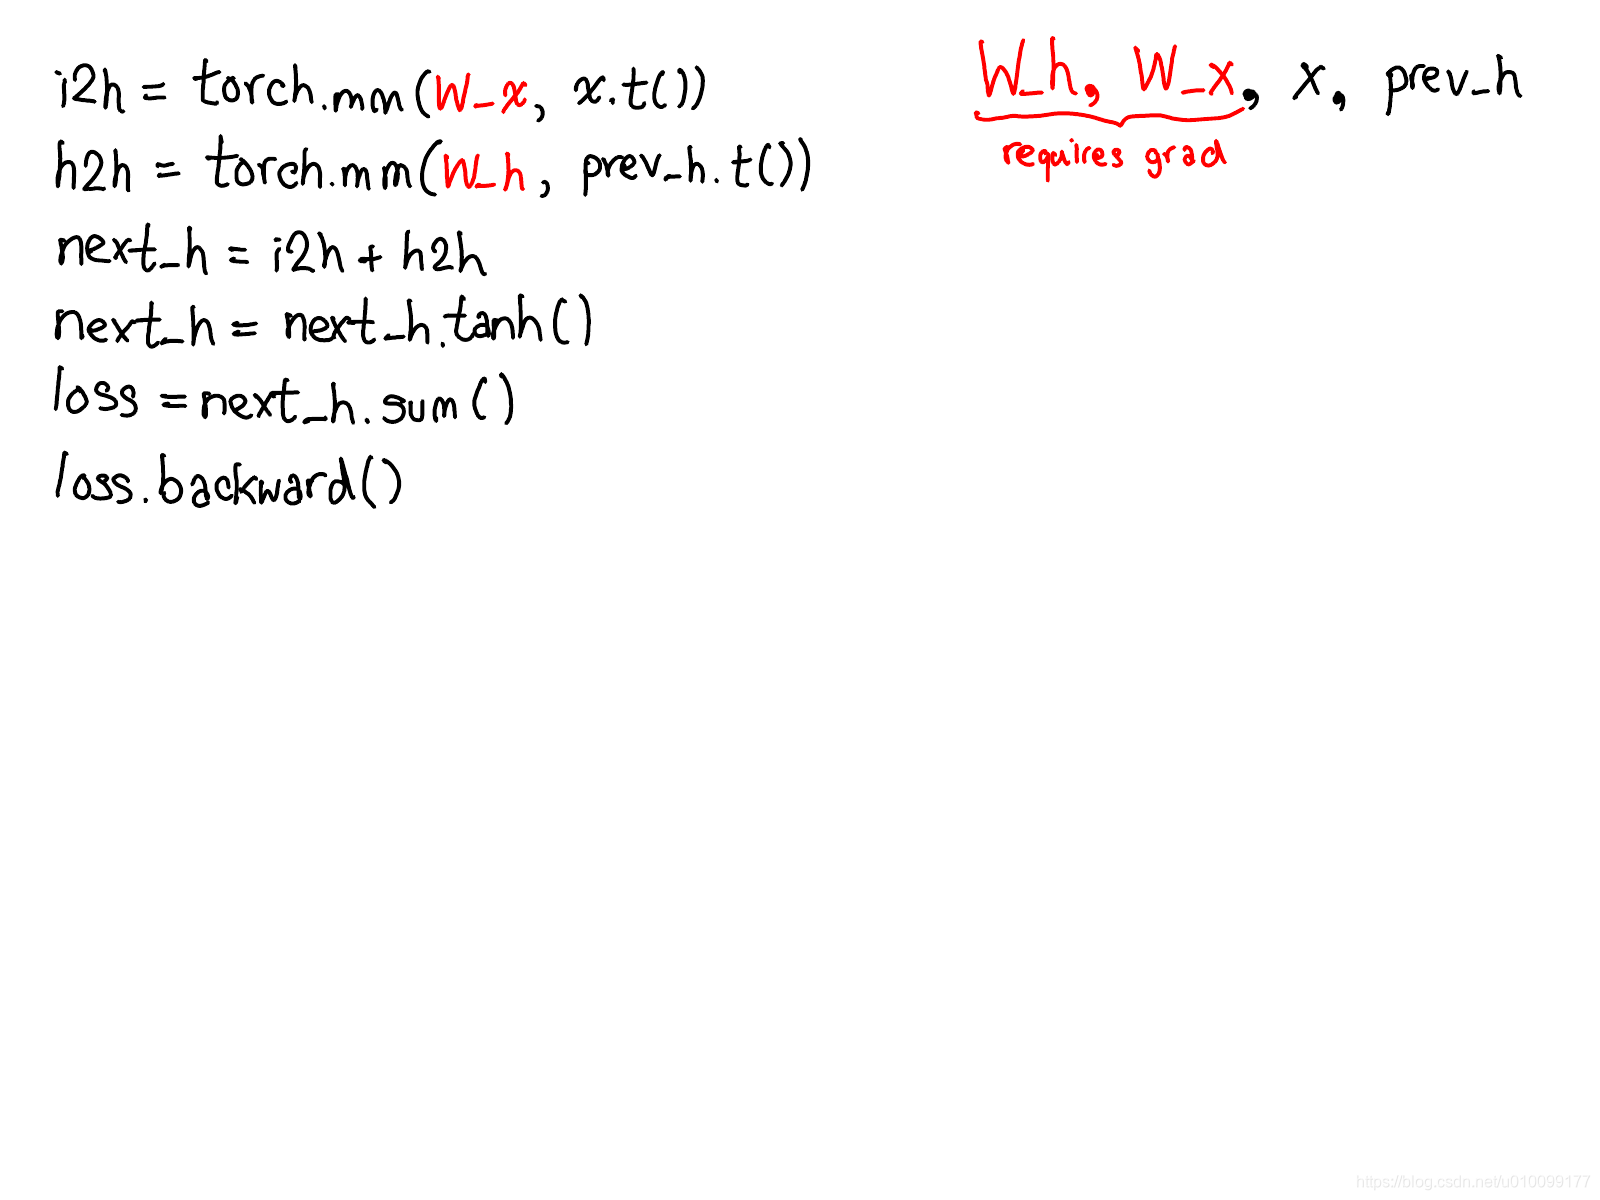 i2h = torch.mm(W_x, x.t())
h2h = torch.mm(W_h, prev_h.t())
next_h = i2h + h2h
next_h = next_h.tanh()
loss = next_h.sum()
loss.backward()
W_h, W_x, x, prev_h
requires grad
https://blog.csdn.net/u010099177